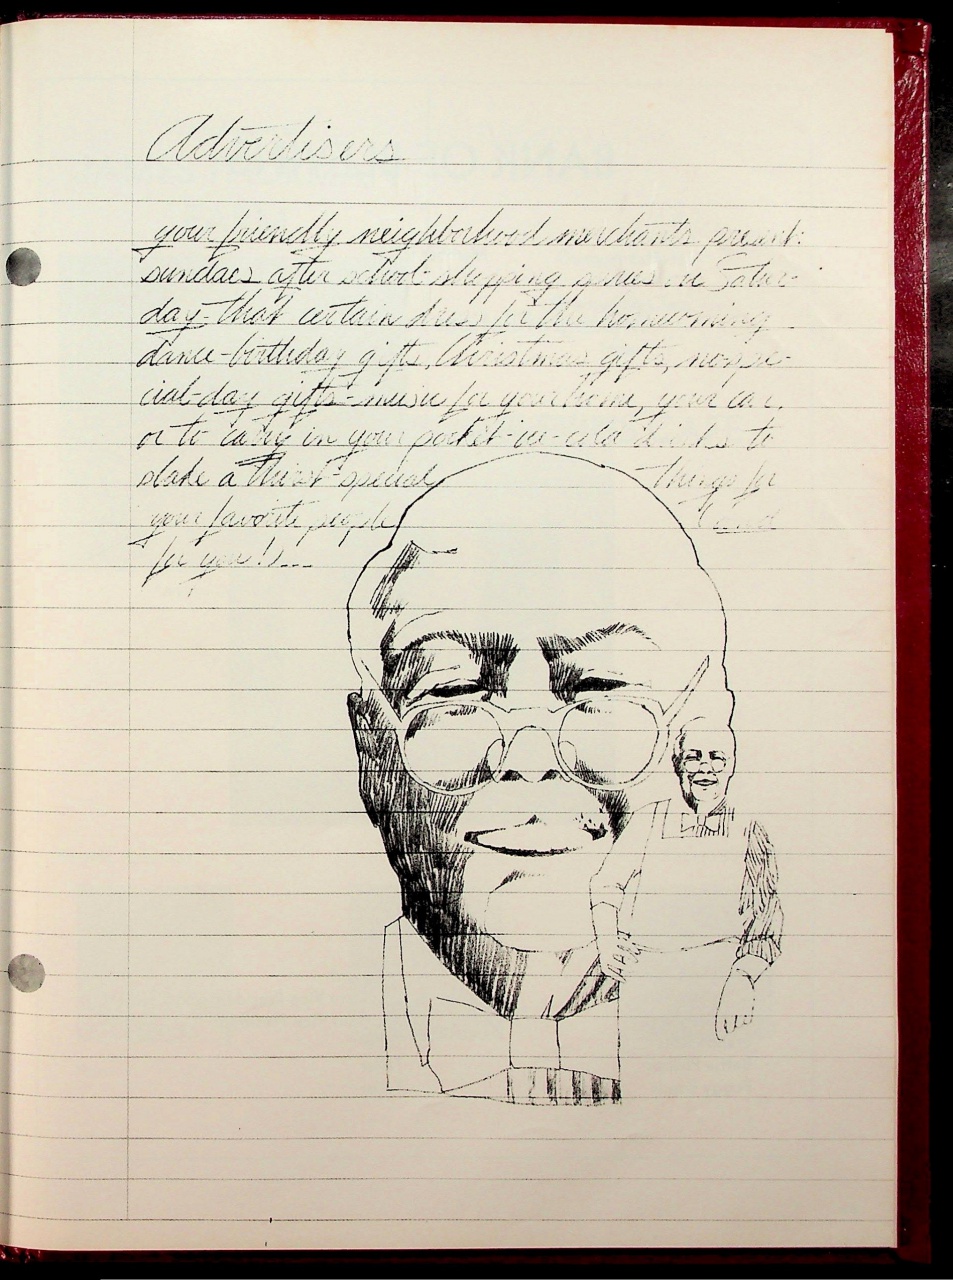 Advertisers
your friendly neighborhood merchants present:
sundaes after school-shopping sprees on Satur-
day-that certain dress for the homecoming
dance-birthday gifts, Christmas gifts, no-spe-
cial-day gifts-music for your home, your car,
or to carry in your pocket-ice-cold drinks to
slake a thirst-special things for
your favorite people
for you!)...